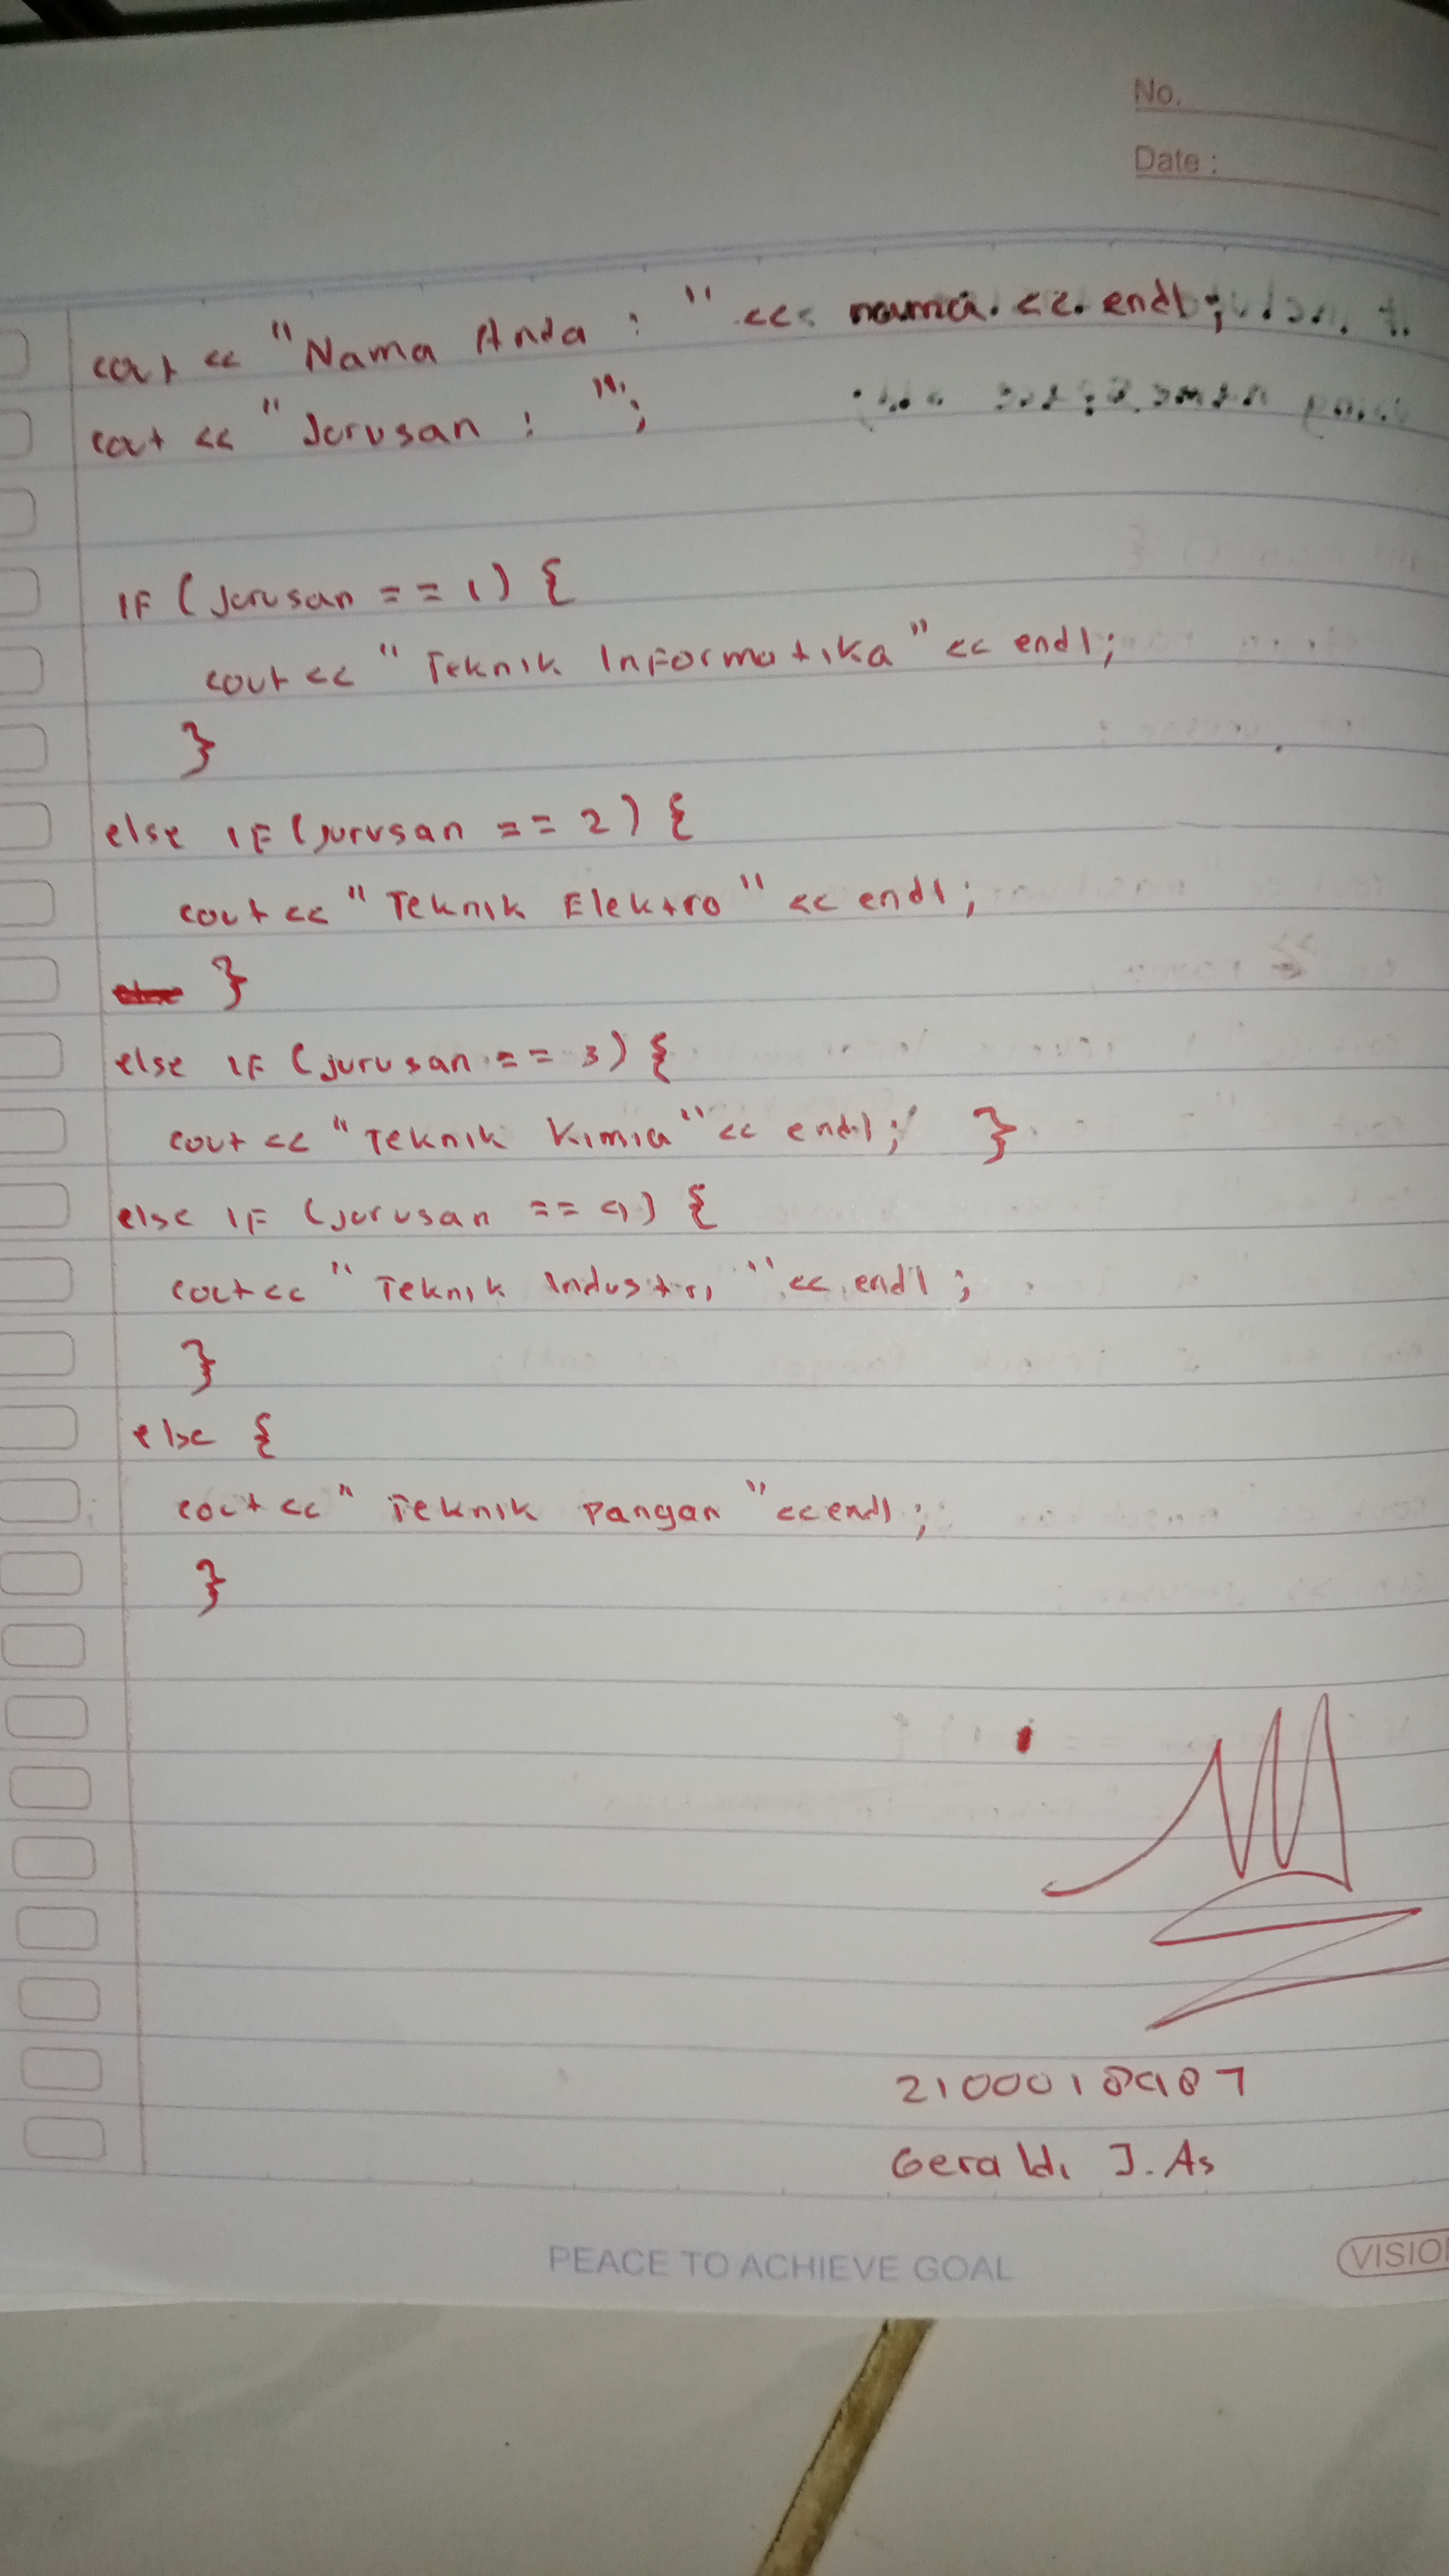 No.
Date :
cout << "Nama Anda : " << nama << endl;
cout << "Jurusan : ";
IF (jurusan == 1) {
cout << "Teknik Informatika" << endl;
}
else IF (jurusan == 2) {
cout << "Teknik Elektro" << endl;
}
else IF (jurusan == 3) {
cout << "Teknik Kimia" << endl; }
else IF (jurusan == 4) {
cout << "Teknik Industri" << endl;
}
else {
cout << "Teknik Pangan" << endl;
}
Geraldi J. As
PEACE TO ACHIEVE GOAL